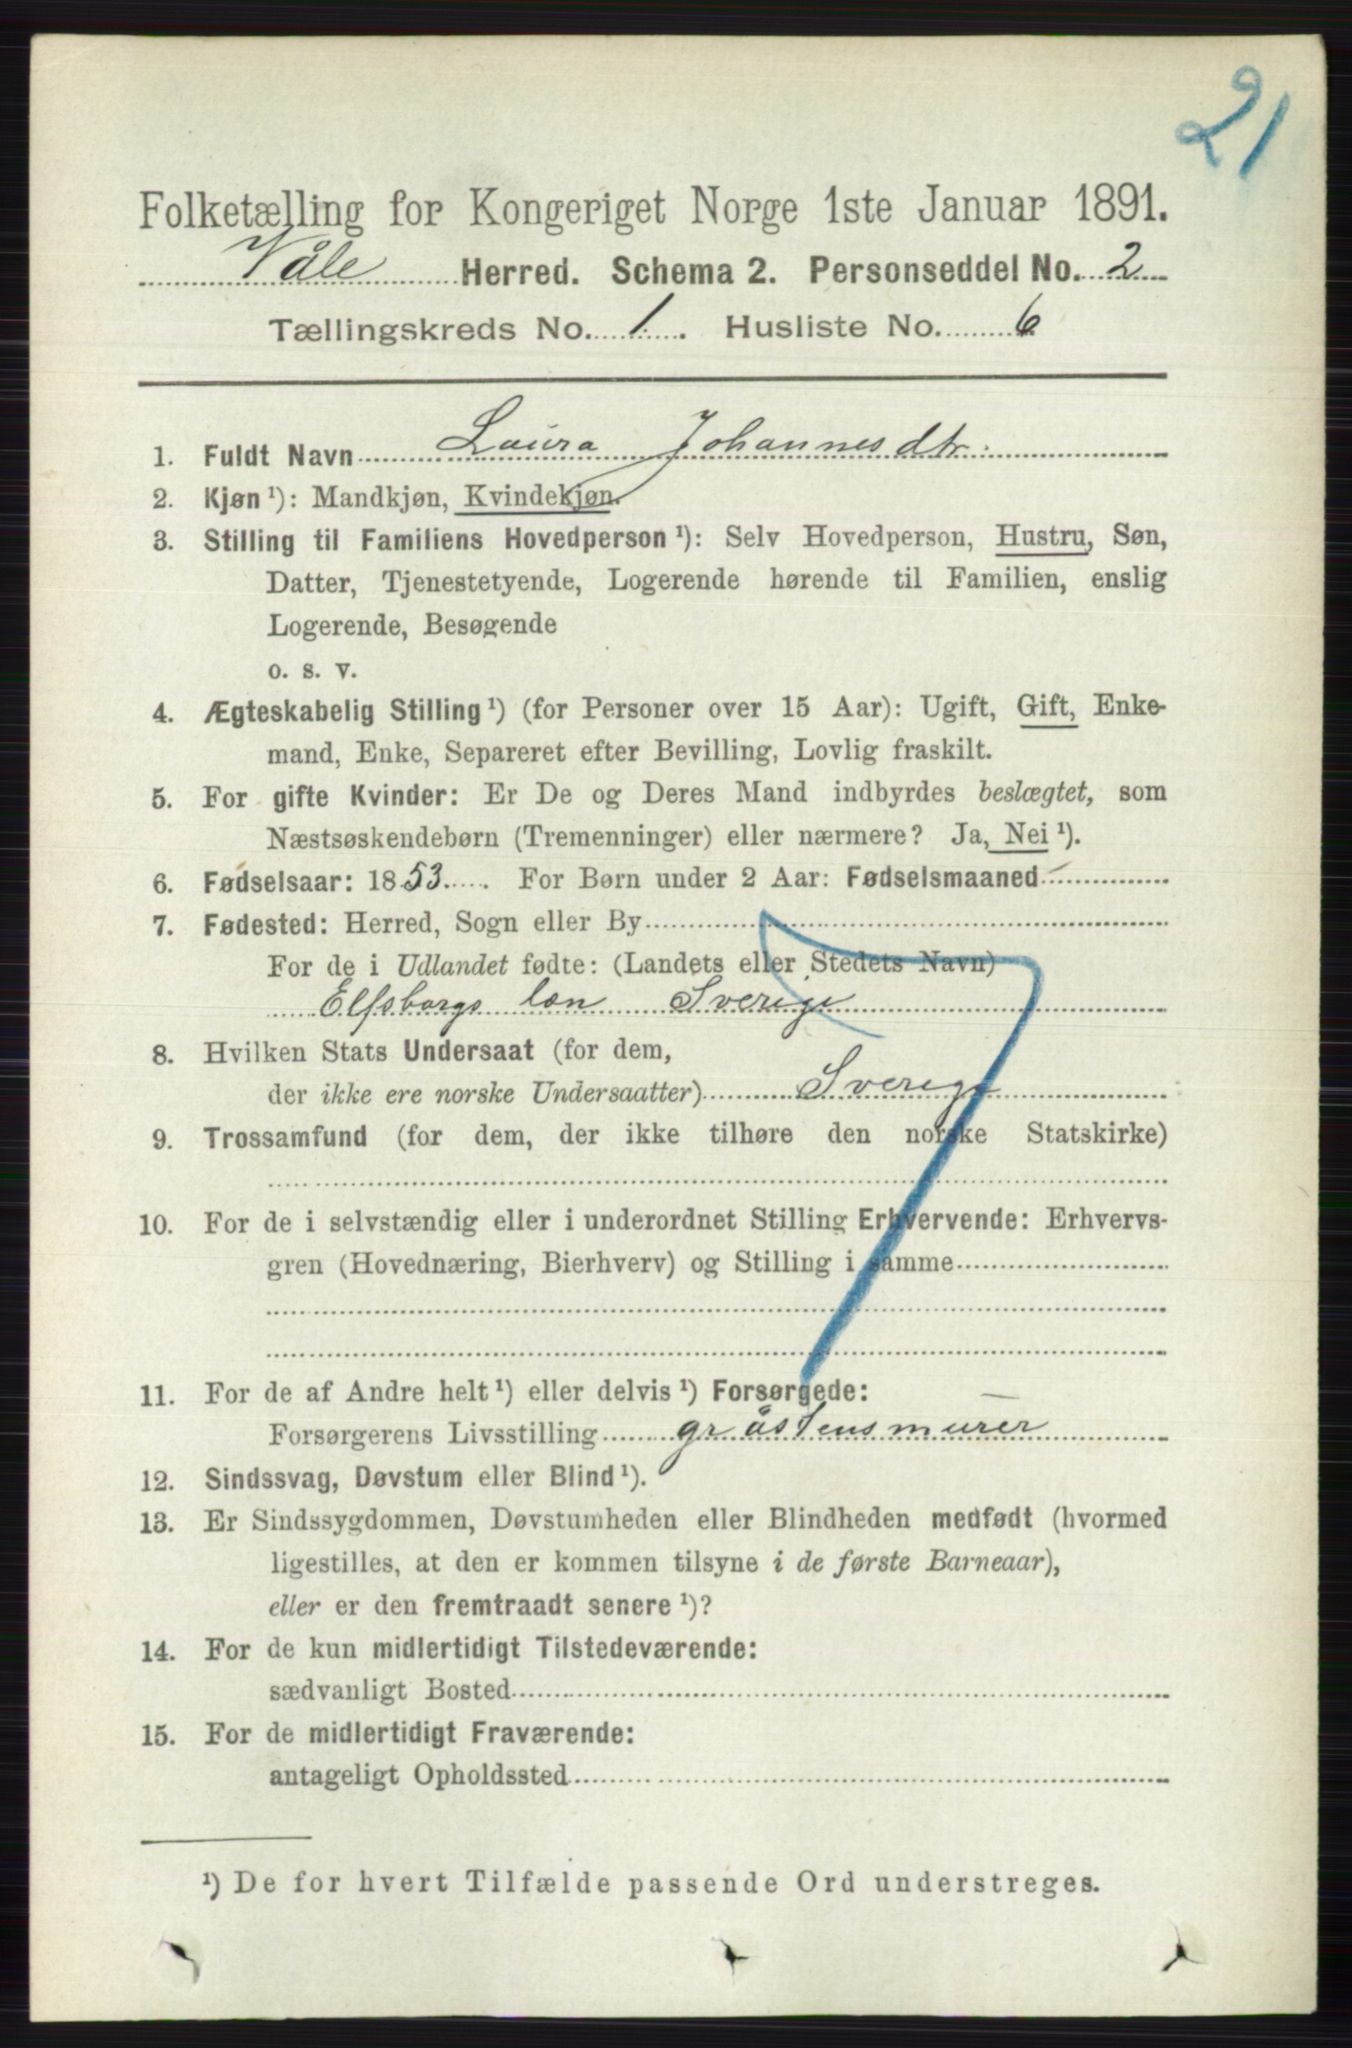 21
Folketælling for Kongeriget Norge 1ste Januar 1891.
Våle Herred. Schema 2. Personseddel No. 2
Tællingskreds No. 1. Husliste No. 6
1. Fuldt Navn Laura Johannesdtr.
2. Kjøn ¹): Mandkjøn, Kvindekjøn.
3. Stilling til Familiens Hovedperson ¹): Selv Hovedperson, Hustru, Søn,
Datter, Tjenestetyende, Logerende hørende til Familien, enslig
Logerende, Besøgende
o. s. v.
4. Ægteskabelig Stilling ¹) (for Personer over 15 Aar): Ugift, Gift, Enke-
mand, Enke, Separeret efter Bevilling, Lovlig fraskilt.
5. For gifte Kvinder: Er De og Deres Mand indbyrdes beslægtet, som
Næstsøskendebørn (Tremenninger) eller nærmere? Ja, Nei ¹).
6. Fødselsaar: 1853. For Børn under 2 Aar: Fødselsmaaned
7. Fødested: Herred, Sogn eller By
For de i Udlandet fødte: (Landets eller Stedets Navn)
Elfsborgs len Sverige
8. Hvilken Stats Undersaat (for dem,
der ikke ere norske Undersaatter) Sverige
9. Trossamfund (for dem, der ikke tilhøre den norske Statskirke)
10. For de i selvstændig eller i underordnet Stilling Erhvervende: Erhvervs-
gren (Hovednæring, Bierhverv) og Stilling i samme
11. For de af Andre helt ¹) eller delvis ¹) Forsørgede:
Forsørgerens Livsstilling gråstensmurer
12. Sindssvag, Døvstum eller Blind ¹).
13. Er Sindssygdommen, Døvstumheden eller Blindheden medfødt (hvormed
ligestilles, at den er kommen tilsyne i de første Barneaar),
eller er den fremtraadt senere ¹)?
14. For de kun midlertidigt Tilstedeværende:
sædvanligt Bosted
15. For de midlertidigt Fraværende:
antageligt Opholdssted
¹) De for hvert Tilfælde passende Ord understreges.